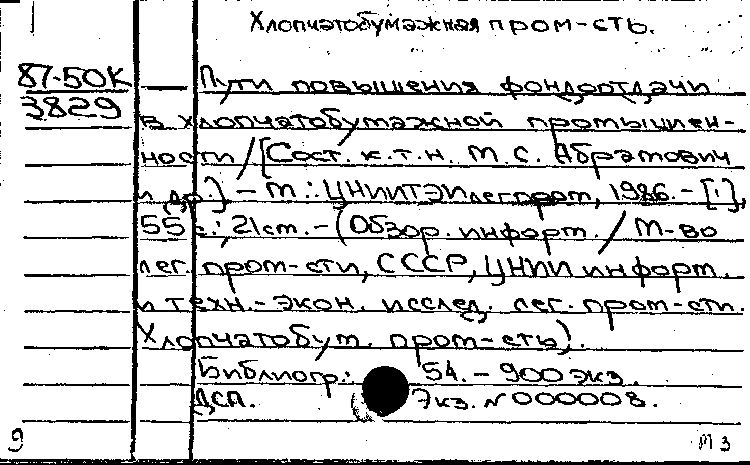 Хлопчатобумажная пром-сть.
87-50К
3829
— Пути повышения фондоотдачи
в хлопчатобумажной промышлен-
ности / [Сост. к.т.н. М.С. Абрамович
и др.]. - М.: ЦНИИТЭИлегпром, 1986. - [1],
55 с.; 21 см. - (Обзор. информ. / М-во
лег. пром-сти, СССР, ЦНИИ информ.
и техн.-экон. исслед. лег. пром-сти.
Хлопчатобум. пром-сть).
Библиогр.: 54. - 900 экз.
ДСП. Экз. N 000008.
9 М 3